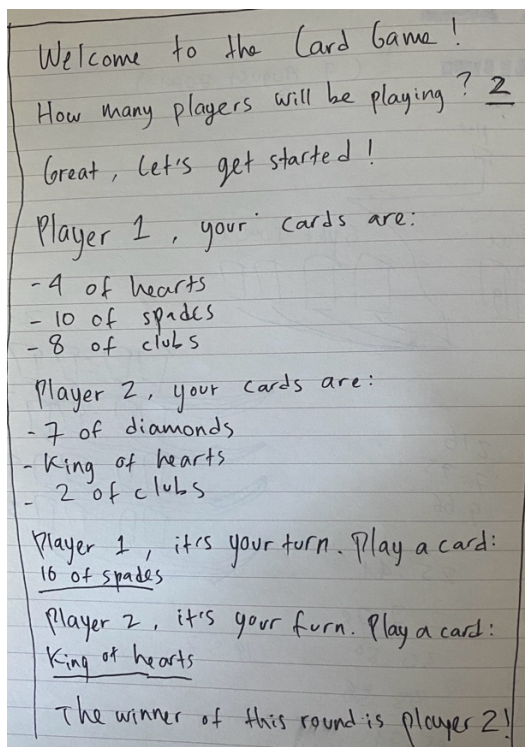 Welcome to the Card Game!
How many players will be playing? 2
Great, let's get started!
Player 1, your cards are:
- 4 of hearts
- 10 of spades
- 8 of clubs
Player 2, your cards are:
- 7 of diamonds
- King of hearts
- 2 of clubs
Player 1, it's your turn. Play a card:
10 of spades
Player 2, it's your turn. Play a card:
King of hearts
The winner of this round is player 2!